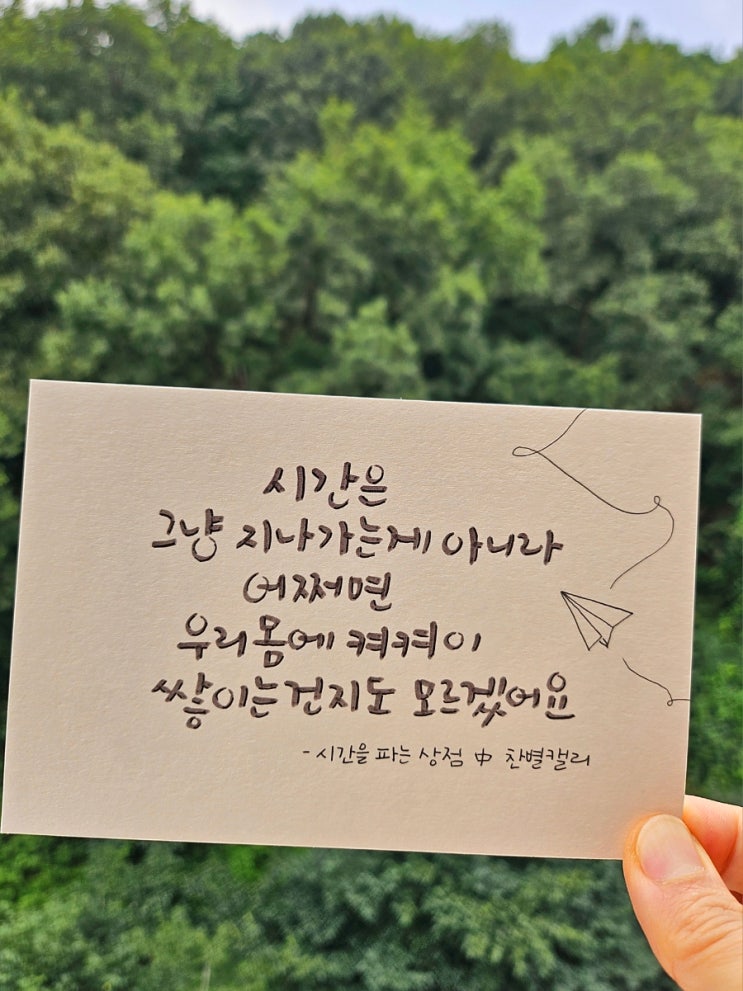 시간은
그냥 지나가는게 아니라
어쩌면
우리몸에 켜켜이
쌓이는건지도 모르겠어요
- 시간을 파는 상점 中 찬별캘리